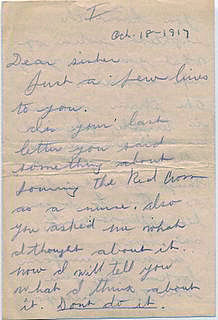 I
Oct. 18-1917
Dear sister
Just a few lines
to you.
In your last
letter you said
something about
Joining the Red Cross
as a nurse. also
you asked me what
I thought about it.
now I will tell you
what I think about
it. Don't do it.